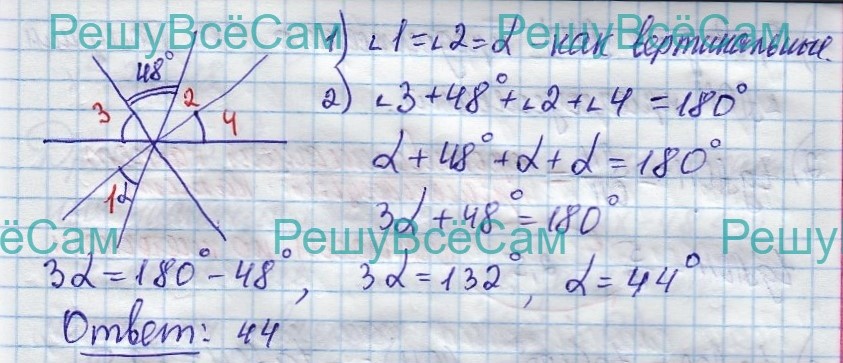 РешуВсёСам РешуВсёСам
48°
3 2 4
1α
1) ∟1=∟2=α как вертикальные.
2) ∟3+48°+∟2+∟4=180°
α+48°+α+α=180°
3α+48°=180°
ёСам РешуВсёСам Решу
3α=180°-48°, 3α=132°, α=44°
Ответ: 44